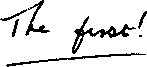 The first!